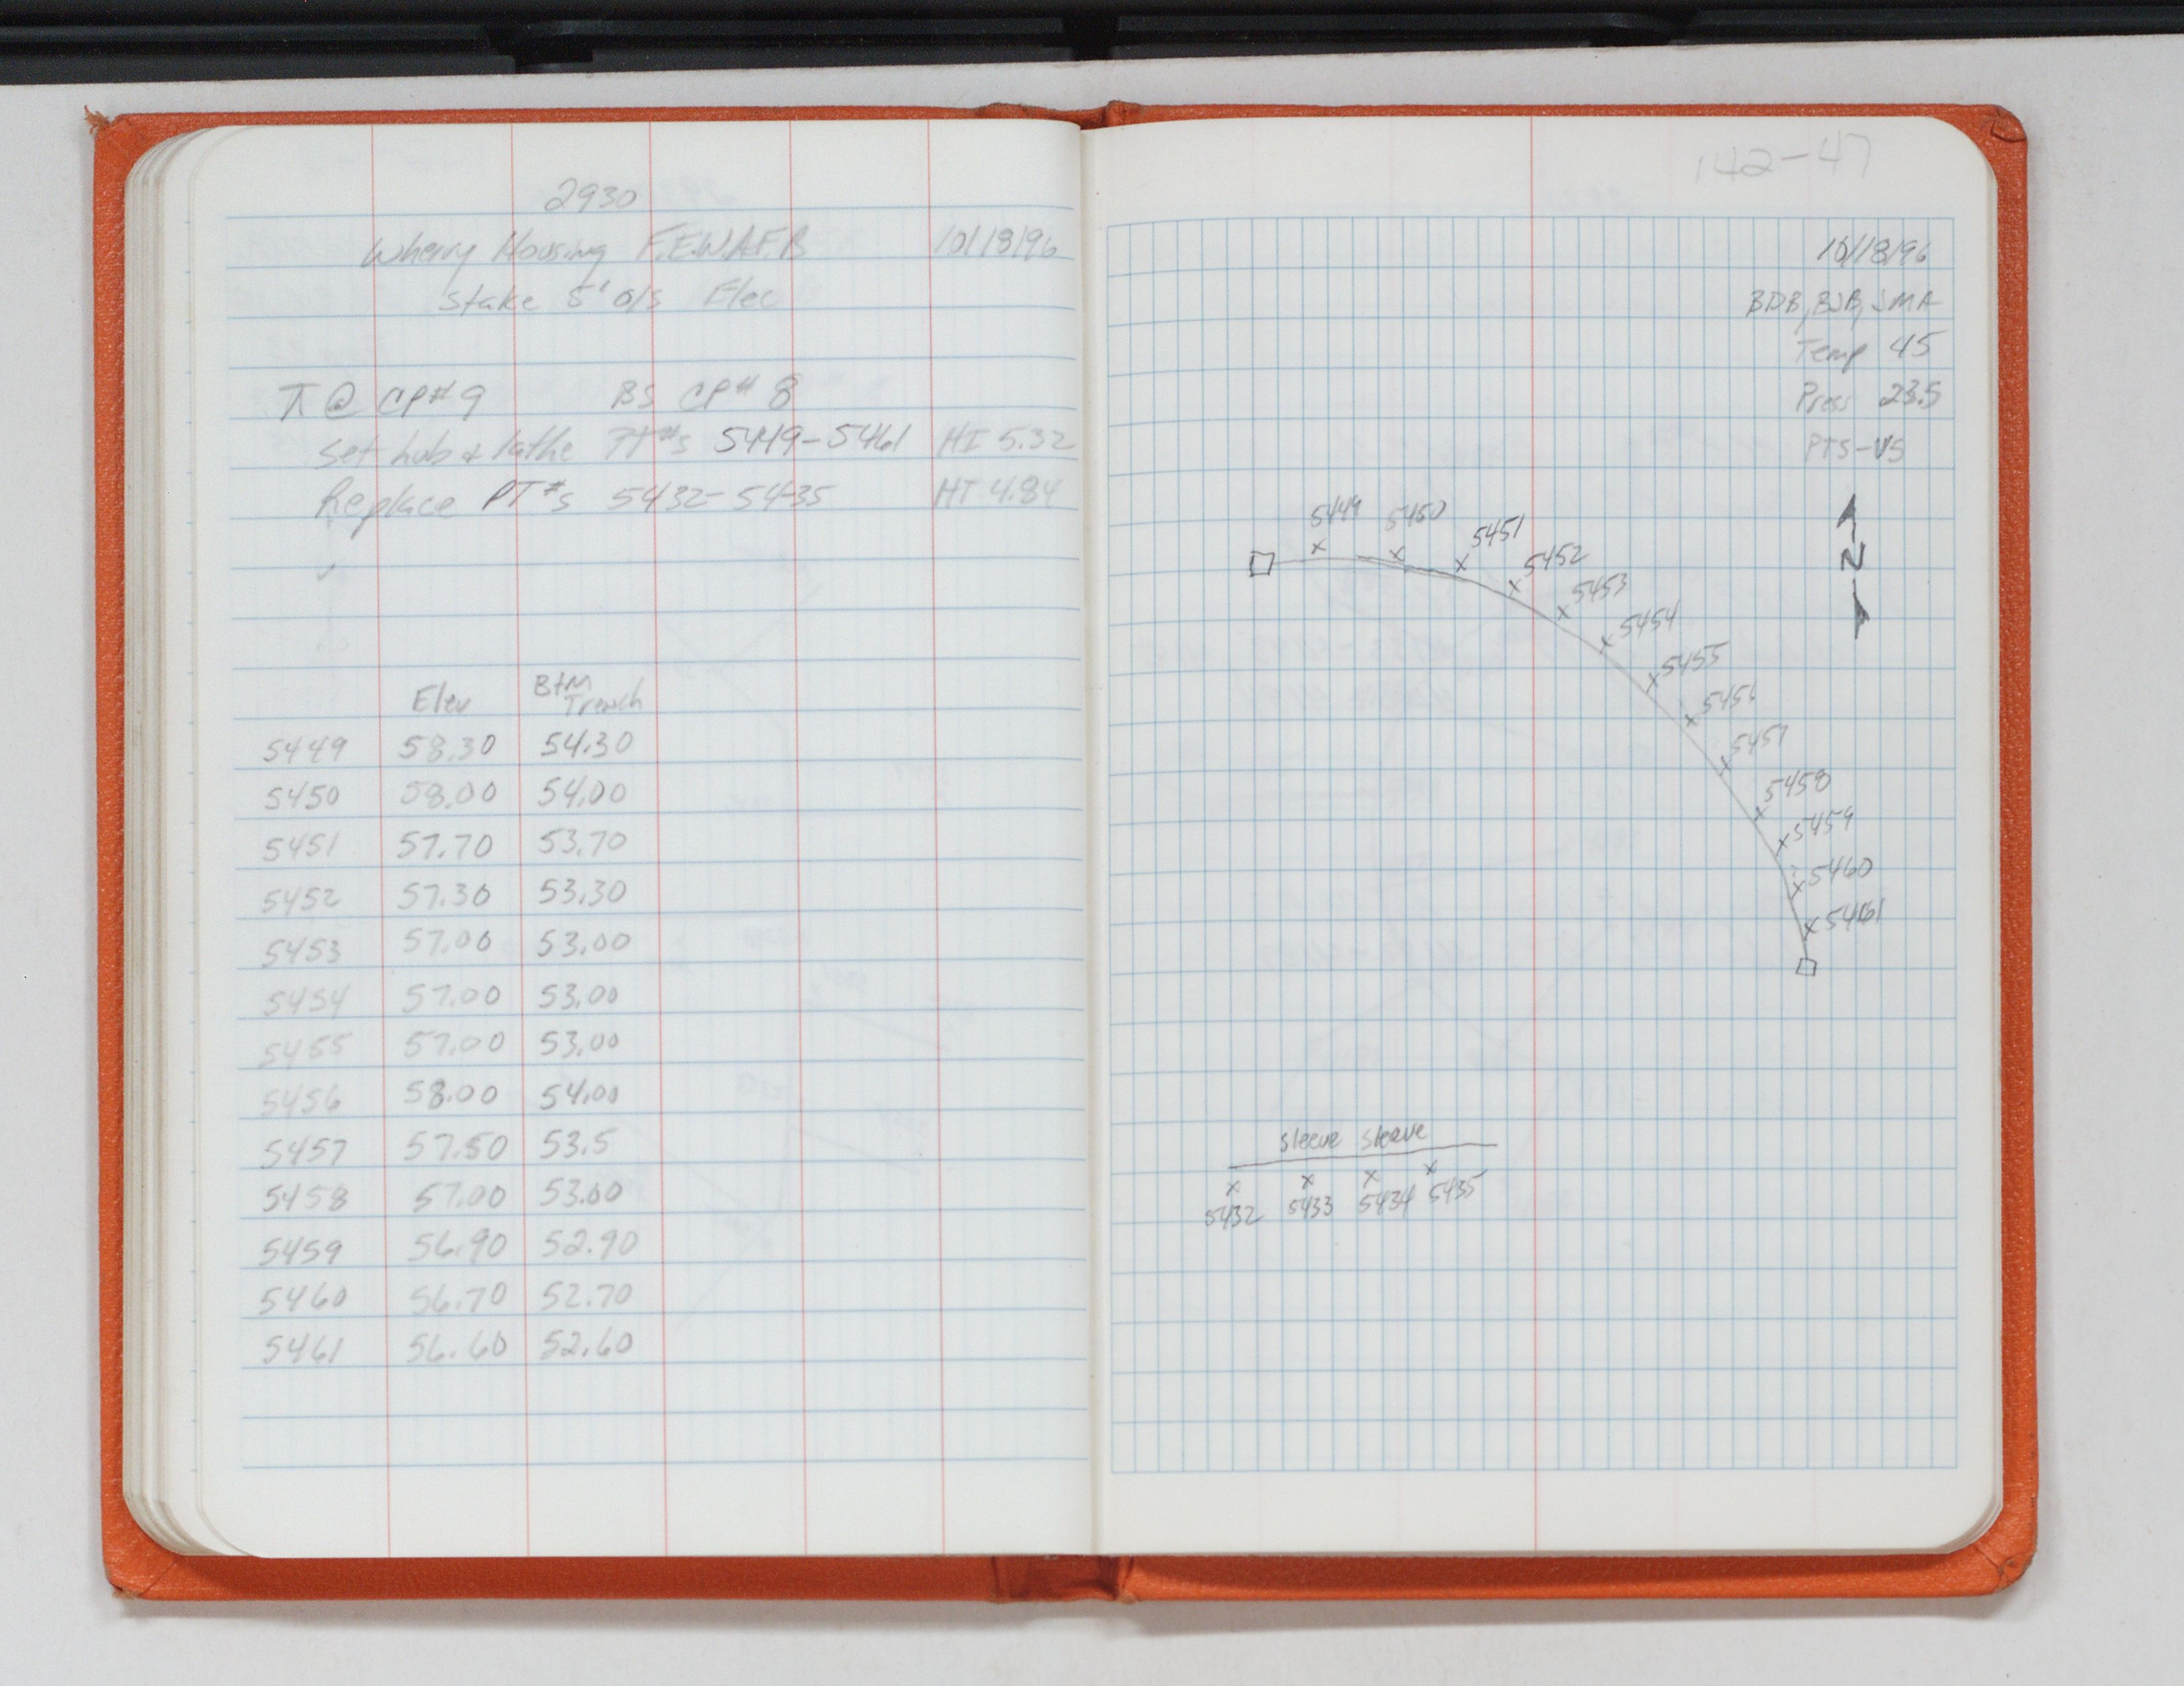 2930
Wherry Housing F.E.W.A.F.B 10/18/96
Stake 5' o/s Elec
π @ CP#9 BS CP#8
Set hub & lathe PT#s 5449-5461 HI 5.32
Replace PT#s 5432-5435 HT 4.84
Elev Btm Trench
5449 58.30 54.30
5450 58.00 54.00
5451 57.70 53.70
5452 57.30 53.30
5453 57.00 53.00
5454 57.00 53.00
5455 57.00 53.00
5456 58.00 54.00
5457 57.50 53.5
5458 57.00 53.00
5459 56.90 52.90
5460 56.70 52.70
5461 56.60 52.60
142-47
10/18/96
BDB, BJB, JMA
Temp 45
Press 23.5
PTS-VS
N
5449
5450
5451
5452
5453
5454
5455
5456
5457
5458
5459
5460
5461
Sleeve Sleeve
5432 5433 5434 5435